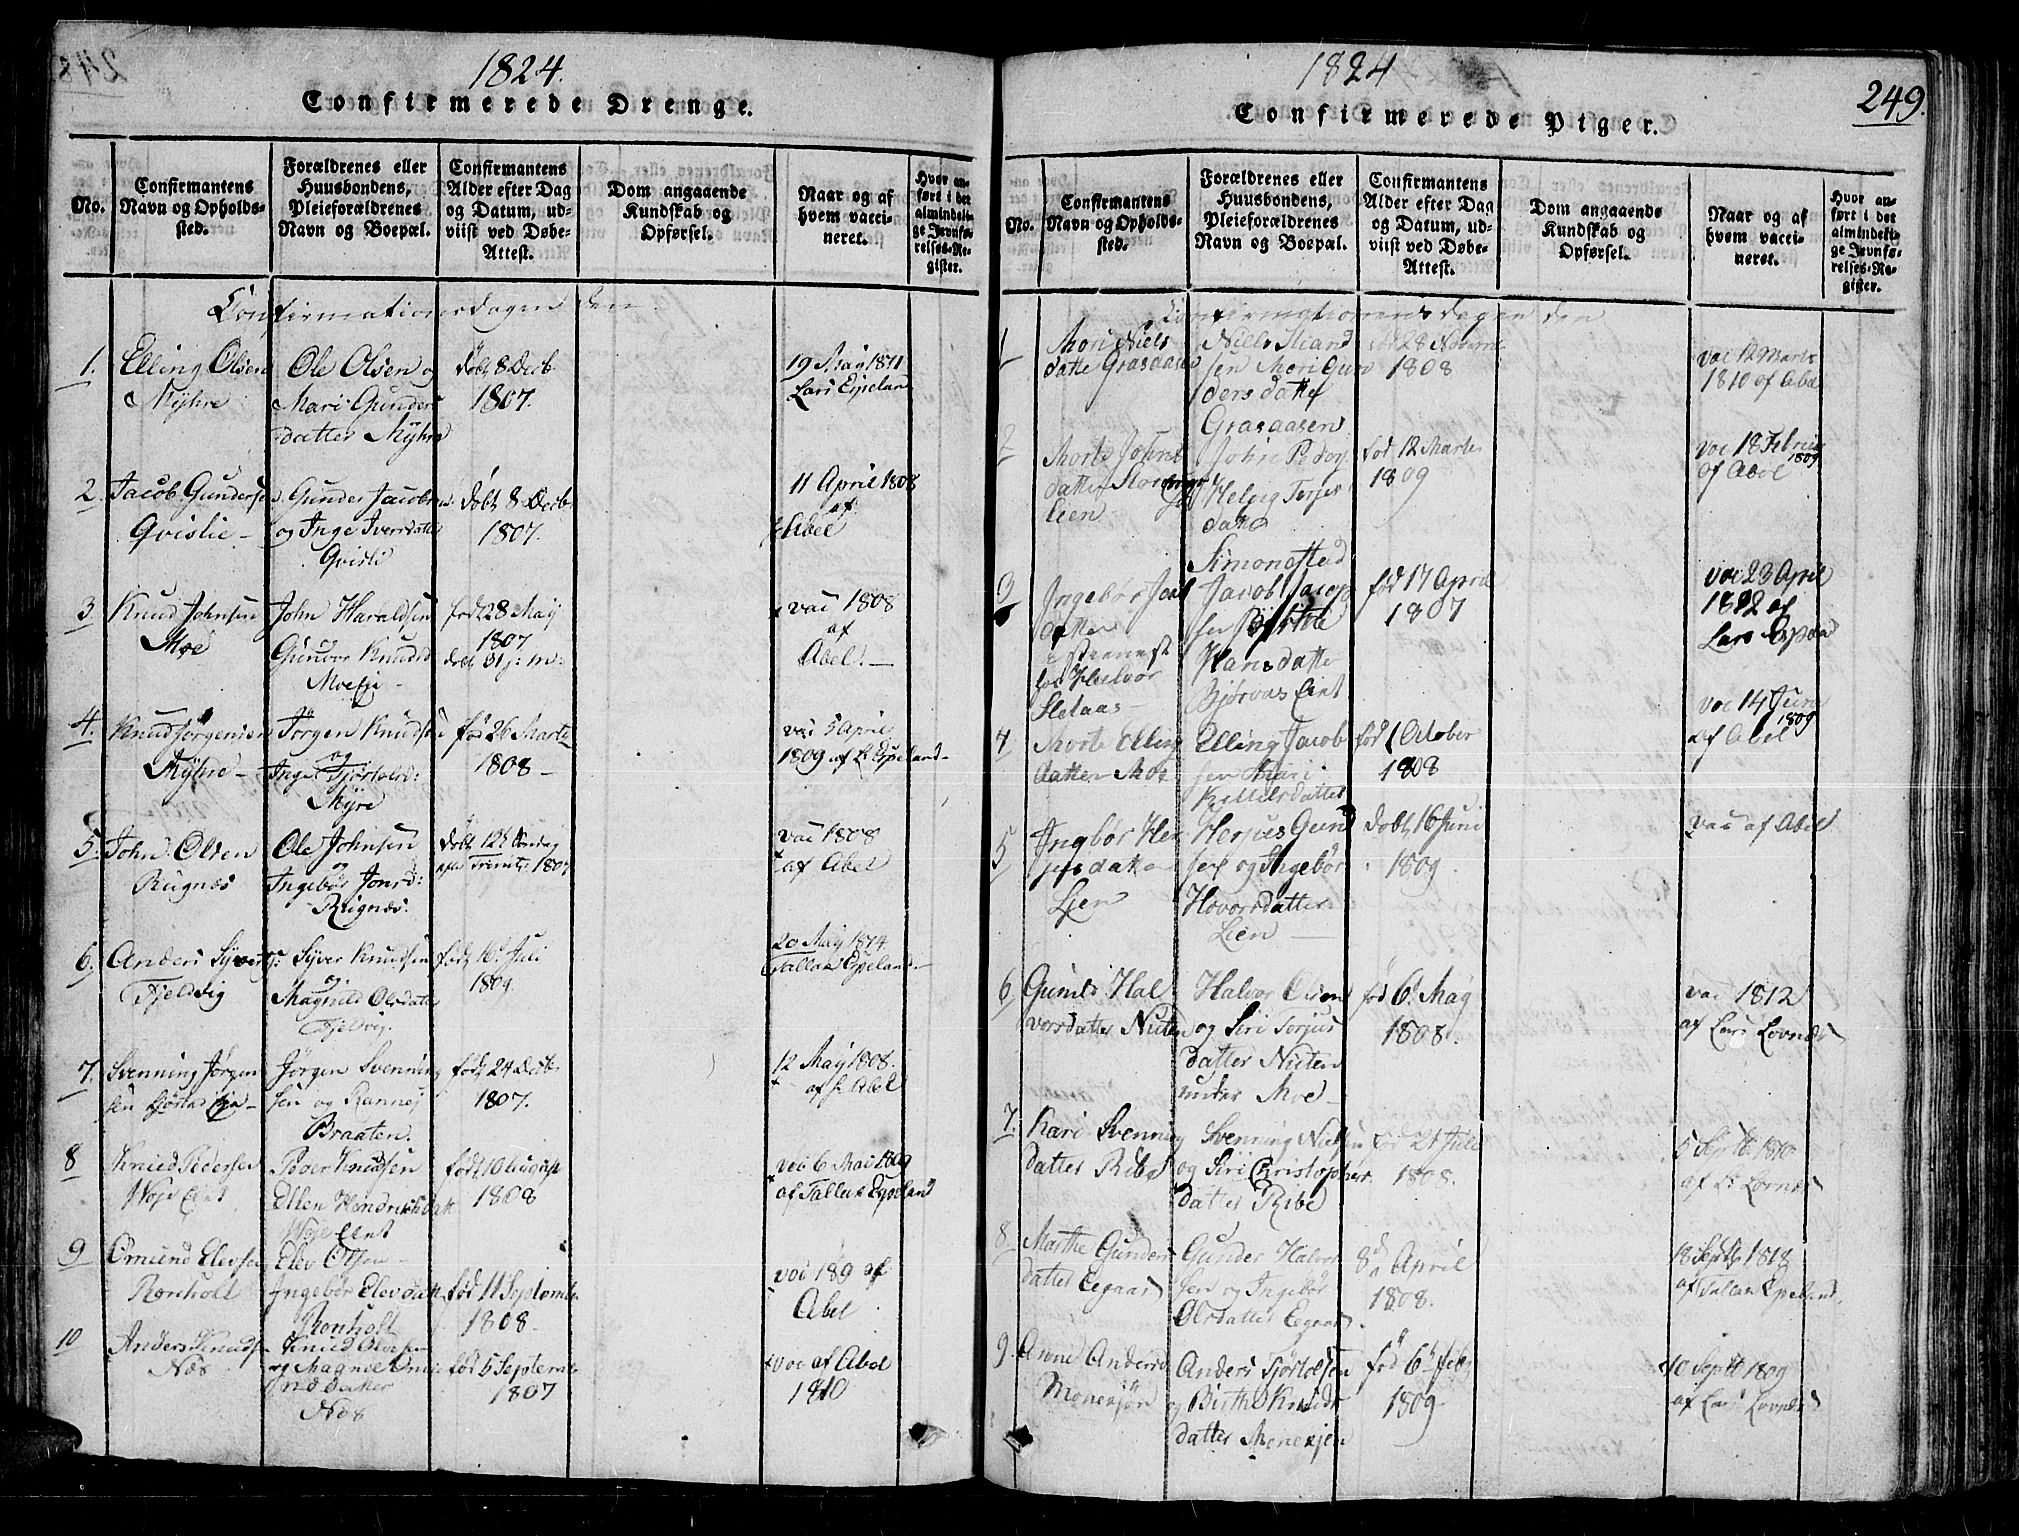 1824.
Confirmerede Drenge.
No.
Confirmantens
Navn og Opholds-
sted.
Forældrenes eller
Huusbondens,
Pleieforældrenes
Navn og Boepæl.
Confirmantens
Alder efter Dag
og Datum, ud-
viist ved Døbe-
Attest.
Dom angaaende
Kundskab og
Opførsel.
Naar og af
hvem vacci-
neret.
Hvor an-
ført i det
almindeli-
ge Jevnfø-
relses-Re-
gister.
Confirmationsdagen den
1. Elling Olsen
Myhre
Ole Olsen og
Mari Gunders
datter Myhre
Døbt 8 Decb
1807.
19 May 1811
Lars Espeland
2. Jacob Gundersen
Qvislie
Gunder Jacobsen
og Inge Iversdatter
Qvisli
Døbt 8 Decb.
1807.
11 April 1808
af
Abel
3. Knud Johnsen
Moe
John Haraldsen
Gunvor Knudsd
Moe
fød 28 May
1807
vac 1808
af
Abel.
4. Knud Jørgensen
Myhre
Jørgen Knudsen
og
Inge
Myre
fød 26 Marts
1808
vac 5 April
1809 af L. Espeland
5. John Olsen
Rugnæs
Ole Johnsen
og
Ingebør Jonsd:
Rugnæs.
Døbt 12te Søndag
efter Trinit: 1807
vac 1808
af Abel
6. Anders Syverts:
Fjeldvig
Syver Knudsen
og
Magnild Olsdatter
Fjeldvig.
født 16de Juli
1809
20 May 1814
Tallak Espeland
7. Svenning Jørgen
sen
Jørgen Svenning
sen og Rannej
Braaten.
født 24 Decbr
1807.
12 May 1808.
af Abel
8 Knud Pedersen
Woje Eint
Peder Knudsen
Ellen Hendriksdatt
Woje Eint
født 10 August
1808
vac 6 Mai 1809
af Tallak Espeland
9 Omund Elevsen
Rønholt
Elev Olsen
Ingebør Elevdatt
Ronholt
fød 11 Septembr
1808
vac 189 af
Abel
10 Anders Knudsen
Næs
Knud Olvesen
og
Næs
fød 5 Septembr
1807
vac af Abel
1810
1824
249.
Confirmerede Piger.
No.
Confirmantens
Navn og Opholds-
sted.
Forældrenes eller
Huusbondens,
Pleieforældrenes
Navn og Boepæl.
Confirmantens
Alder efter Dag
og Datum, ud-
viist ved Døbe-
Attest.
Dom angaaende
Kundskab og
Opførsel.
Naar og af
hvem vacci-
neret.
Hvor an-
ført i det
almindeli-
ge Jevnfø-
relses-Re-
gister.
Confirmationens dagen den
1 Mari Niels
datte Grasaasen
Niels
sen Mari Gun
ders datte
Grasaasen
28 Novemr
1808
vac 12 Marts
1810 af Abel
2 Morte Johns
datter
leen
John
Helvig Terjes
datte
Simonsted
fød 12 Marts
1809
vac 18 Februar
1809
af Abel
3 Ingebør Jacobs
datter
i tieneste
hos Halvor
Slataas
Jacob Jacop
sen
Hansdatte
Bjorvas Eint
fød 17 April
1807
vac 23 April
1812 af
Lars Espeland
4 Morte Elling
datter Moe
Elling Jacob
sen Kari
Kittelsdatter
fød 1 October
1808
vac 14 Juni
1809
af Abel
5 Ingbør Her
jusdatte
Lien
Herjus Gund
sen og Ingebør
Hovorsdatter
Lien
Døbt 16 Juni
1809
vac af Abel
6 Gunild Hal
vorsdatter Nuten
Halvor Olsen
og Siri Torjus
datter Nuten
under Moe
fød 6te May
1808.
vac 1812
af Lars Lovnæs
7. Kari Svenning
datter Ribe
Svenning Nielsen
og Siri Christopher
datter Ribe
fød 21 Juli
1808.
5 Septb 1810
af L. Lovnæs
8. Marthe Gunders
datter Eegaas
Gunder Halvor
sen og Ingebør
Olsdatter Eegaas
8de April
1808.
18 Septb 1818
af Tallak Espeland
9. Anne Anders
Monensjøn
Anders
og Birthe Knuds
datter Monesjen
fød 6te feb:
1809
10 Septb 1809
af Lars Lovnæs